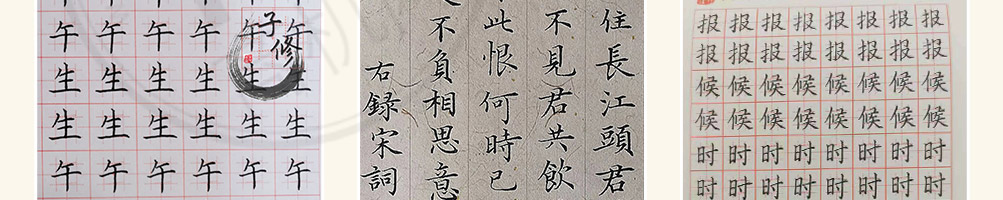 午午午午午午
生生生生生生
生生生生生生
午午午午午午
子修
住長江頭君
不見君共飲
此恨何時已
不負相思意
右録宋詞
报报报报报报报报
报报报报报报报报
候候候候候候候候
候候候候候候候候
时时时时时时时时
时时时时时时时时